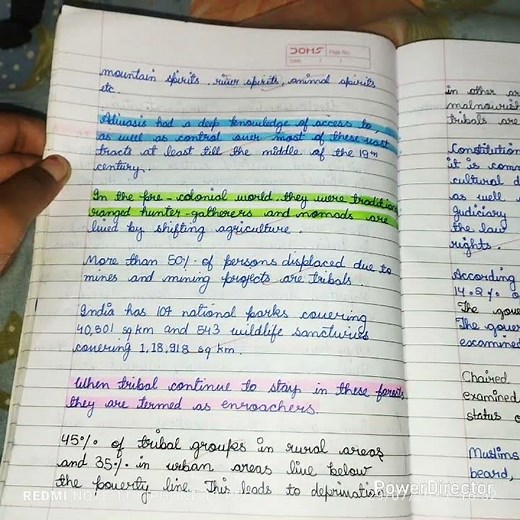 DOMS
Page No.
Date
mountain spirits, river spirits, animal spirits
etc.
Adivasis had a deep knowledge of access to
as well as control over most of these vast
tracts at least till the middle of the 19th
century.
In the pre-colonial world, they were
ranged hunter-gatherers and nomads are
lived by shifting agriculture.
More than 50% of persons displaced due to
mines and mining projects are tribals.
India has 104 national parks covering
40,501 sq km and 543 wildlife
covering 1,18,918 sq km.
When tribal continue to stay in these
they are termed as enroachers.
45% of tribal groups in rural areas
and 35% in urban areas live below
the poverty line. This leads to
in other
tribals are
Constitution
it is
cultural
as well
judiciary
the law
rights.
According
14.2%
The
The
examined
Chaired
examined
status
Muslims
beard,
REDMI
PowerDirector